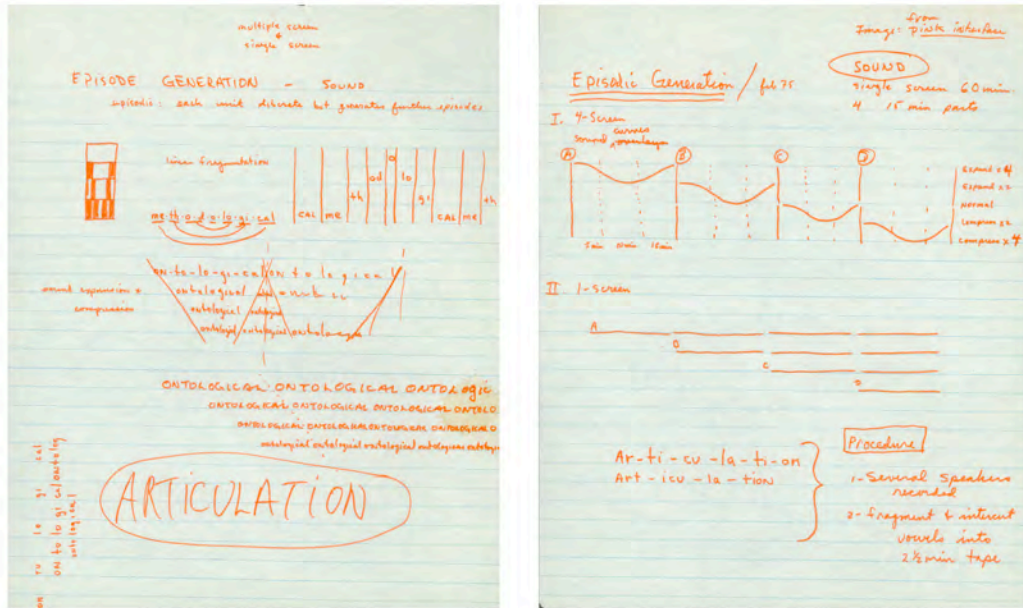 multiple screen
+
single screen
EPISODE GENERATION - SOUND
episodic: each unit discrete but generates further episodes
linear fragmentation
CAL me th od o lo gi CAL me th
me-th-o-d-o-lo-gi-cal
on-to-lo-gi-cal on to lo gi ca l
ontological
sound expansion +
compression
ontological ontological
ontological ontological ontological
ONTOLOGICAL ONTOLOGICAL ONTOLOGIC
ONTOLOGICAL ONTOLOGICAL ONTOLOGICAL ONTOLO
ONTOLOGICAL ONTOLOGICAL ONTOLOGICAL ONTOLOGICAL O
ontological ontological ontological ontolog
ARTICULATION
ON TO lo gi cal
ON to lo gi cal/ontolog
ontological
from
Image: pink interface
SOUND
single screen 60 min.
4 15 min parts
Episodic Generation / feb 75
I. 4-Screen
sound curves overlays
A B C D
Expand x 4
Expand x 2
Normal
Compress x 2
Compress x 4
5 min 10 min 15 min
II 1-Screen
A
B
C
D
Ar-ti-cu-la-ti-on
Art-icu-la-tion
Procedure
1-Several speakers
recorded
2-fragment & intercut
vowels into
2 1/2 min tape